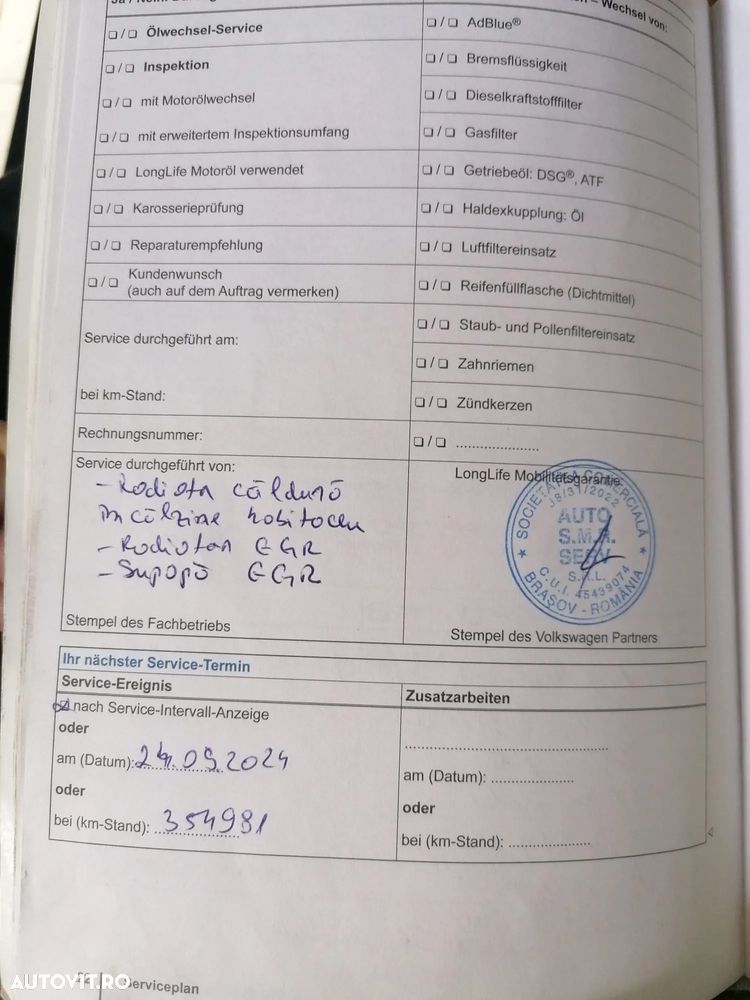 Wechsel von:
❑ / ❑ Ölwechsel-Service
❑ / ❑ Inspektion
❑ / ❑ mit Motorölwechsel
❑ / ❑ mit erweitertem Inspektionsumfang
❑ / ❑ LongLife Motoröl verwendet
❑ / ❑ Karosserieprüfung
❑ / ❑ Reparaturempfehlung
❑ / ❑ Kundenwunsch
(auch auf dem Auftrag vermerken)
Service durchgeführt am:
bei km-Stand:
Rechnungsnummer:
❑ / ❑ AdBlue®
❑ / ❑ Bremsflüssigkeit
❑ / ❑ Dieselkraftstofffilter
❑ / ❑ Gasfilter
❑ / ❑ Getriebeöl: DSG®, ATF
❑ / ❑ Haldexkupplung: Öl
❑ / ❑ Luftfiltereinsatz
❑ / ❑ Reifenfüllflasche (Dichtmittel)
❑ / ❑ Staub- und Pollenfiltereinsatz
❑ / ❑ Zahnriemen
❑ / ❑ Zündkerzen
❑ / ❑ .....................
Service durchgeführt von:
- Radiator căldură
încălzire habitaclu
- Radiator EGR
- Supapă EGR
Stempel des Fachbetriebs
LongLife Mobilitätsgarantie:
SOCIETATEA COMERCIALĂ
J8/31/2022
AUTO
S.M.A.
SERV
S.R.L.
C.U.I. 45439074
BRAȘOV - ROMÂNIA
Stempel des Volkswagen Partners
Ihr nächster Service-Termin
Service-Ereignis
nach Service-Intervall-Anzeige
oder
am (Datum): 24.09.2024
oder
bei (km-Stand): 354981
Zusatzarbeiten
....................................................
am (Datum): .....................
oder
bei (km-Stand): .....................
Serviceplan
AUTOVIT.RO